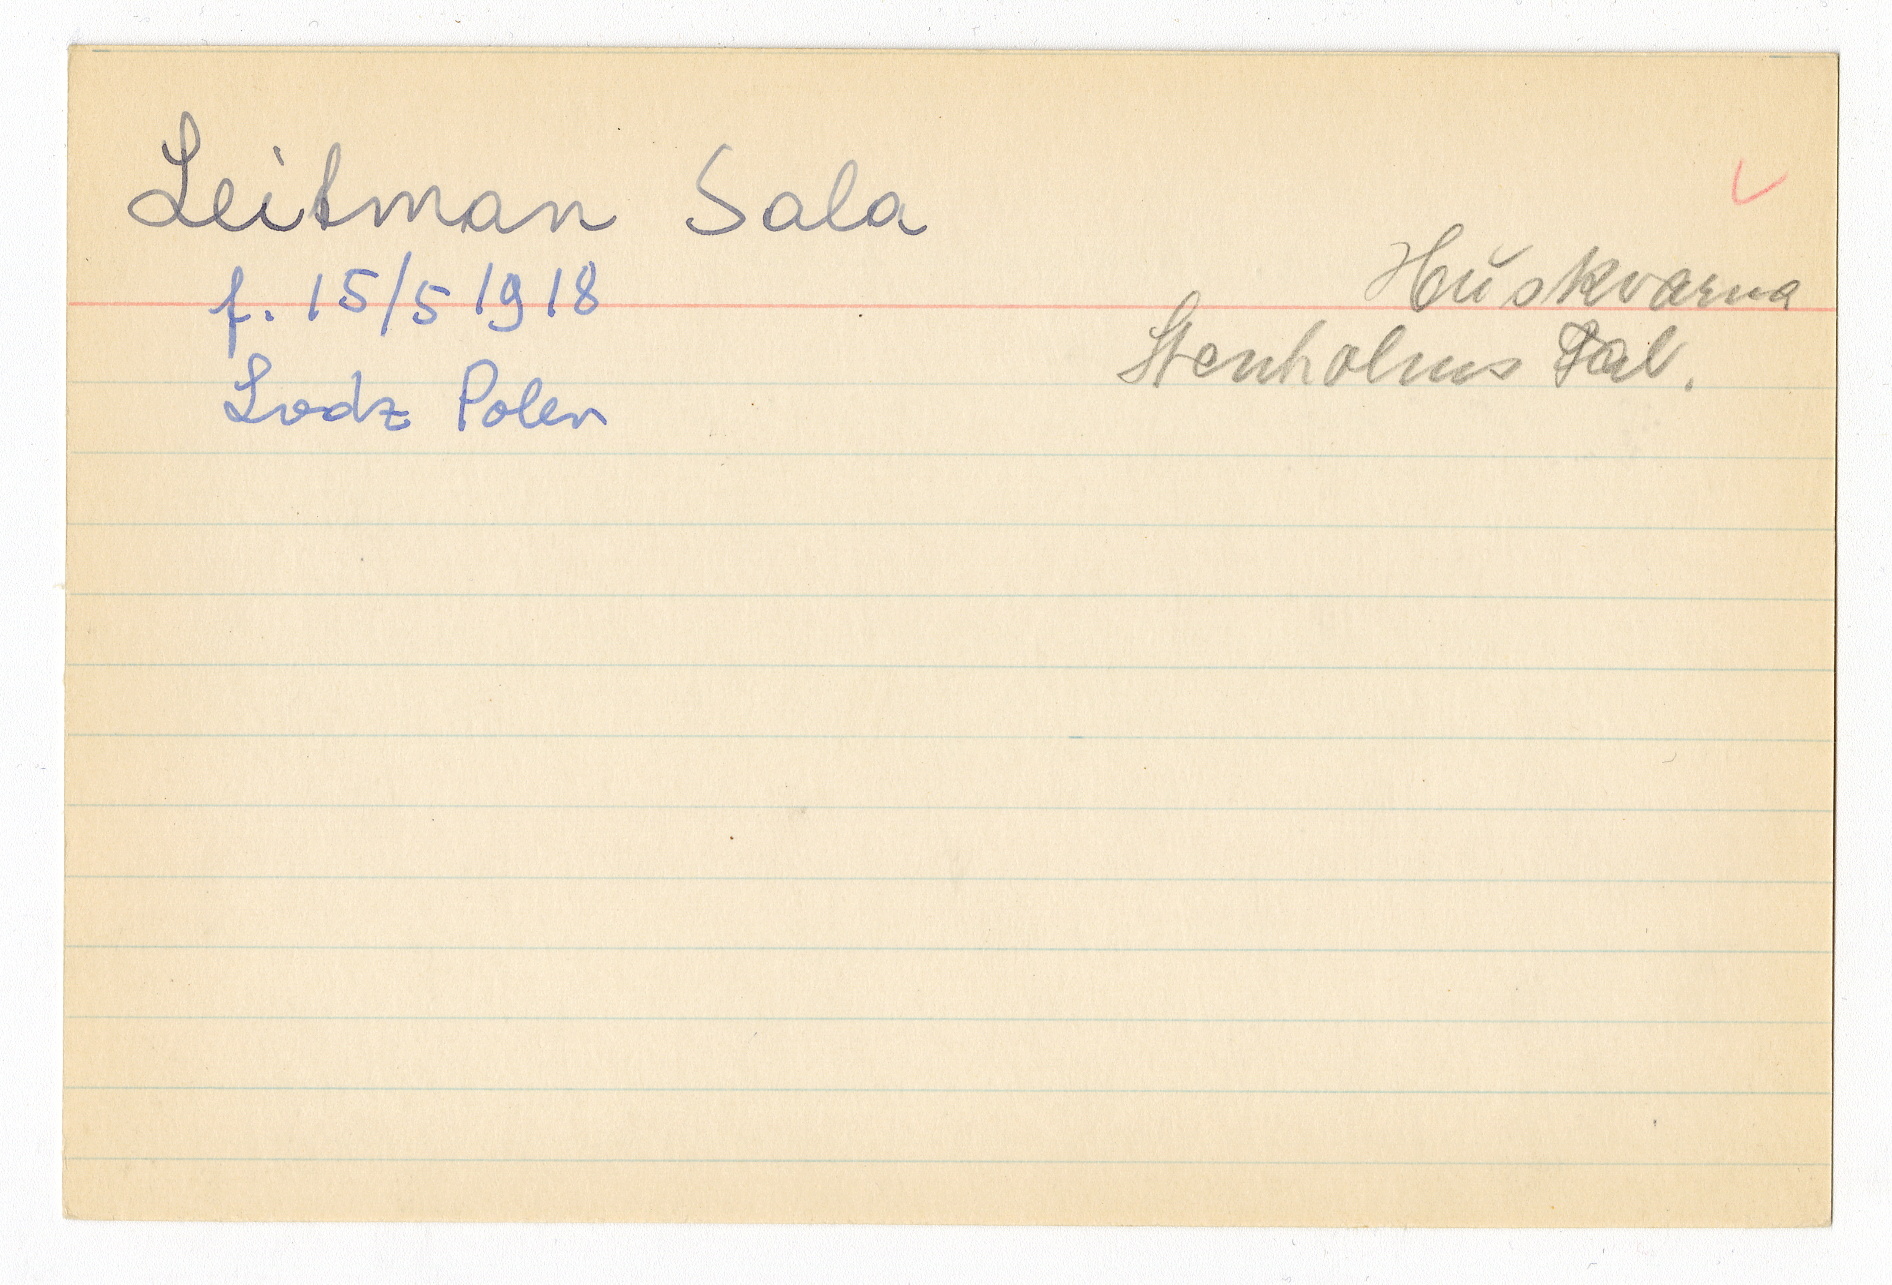 Leitman Sala
f. 15/5 1918
Lodz Polen
Huskvarna
Stenholms Fab.